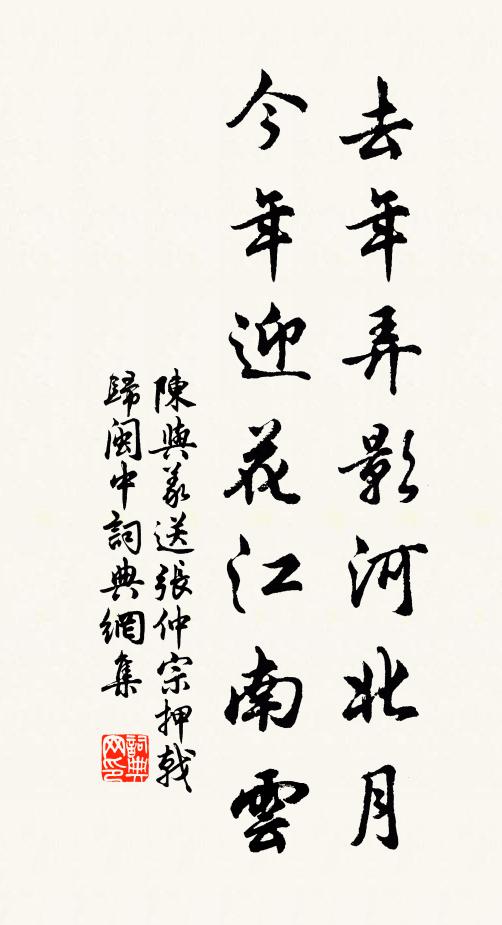 去年弄影河北月
今年迎花江南雲
陳與義送張仲宗押戟
歸閩中詞典網集
詞典
网印